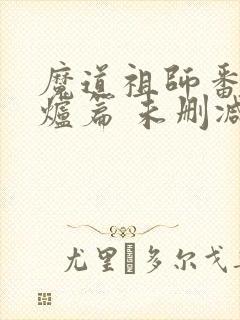 魔道祖師番
爐篇 未删减
尤里 多尔戈